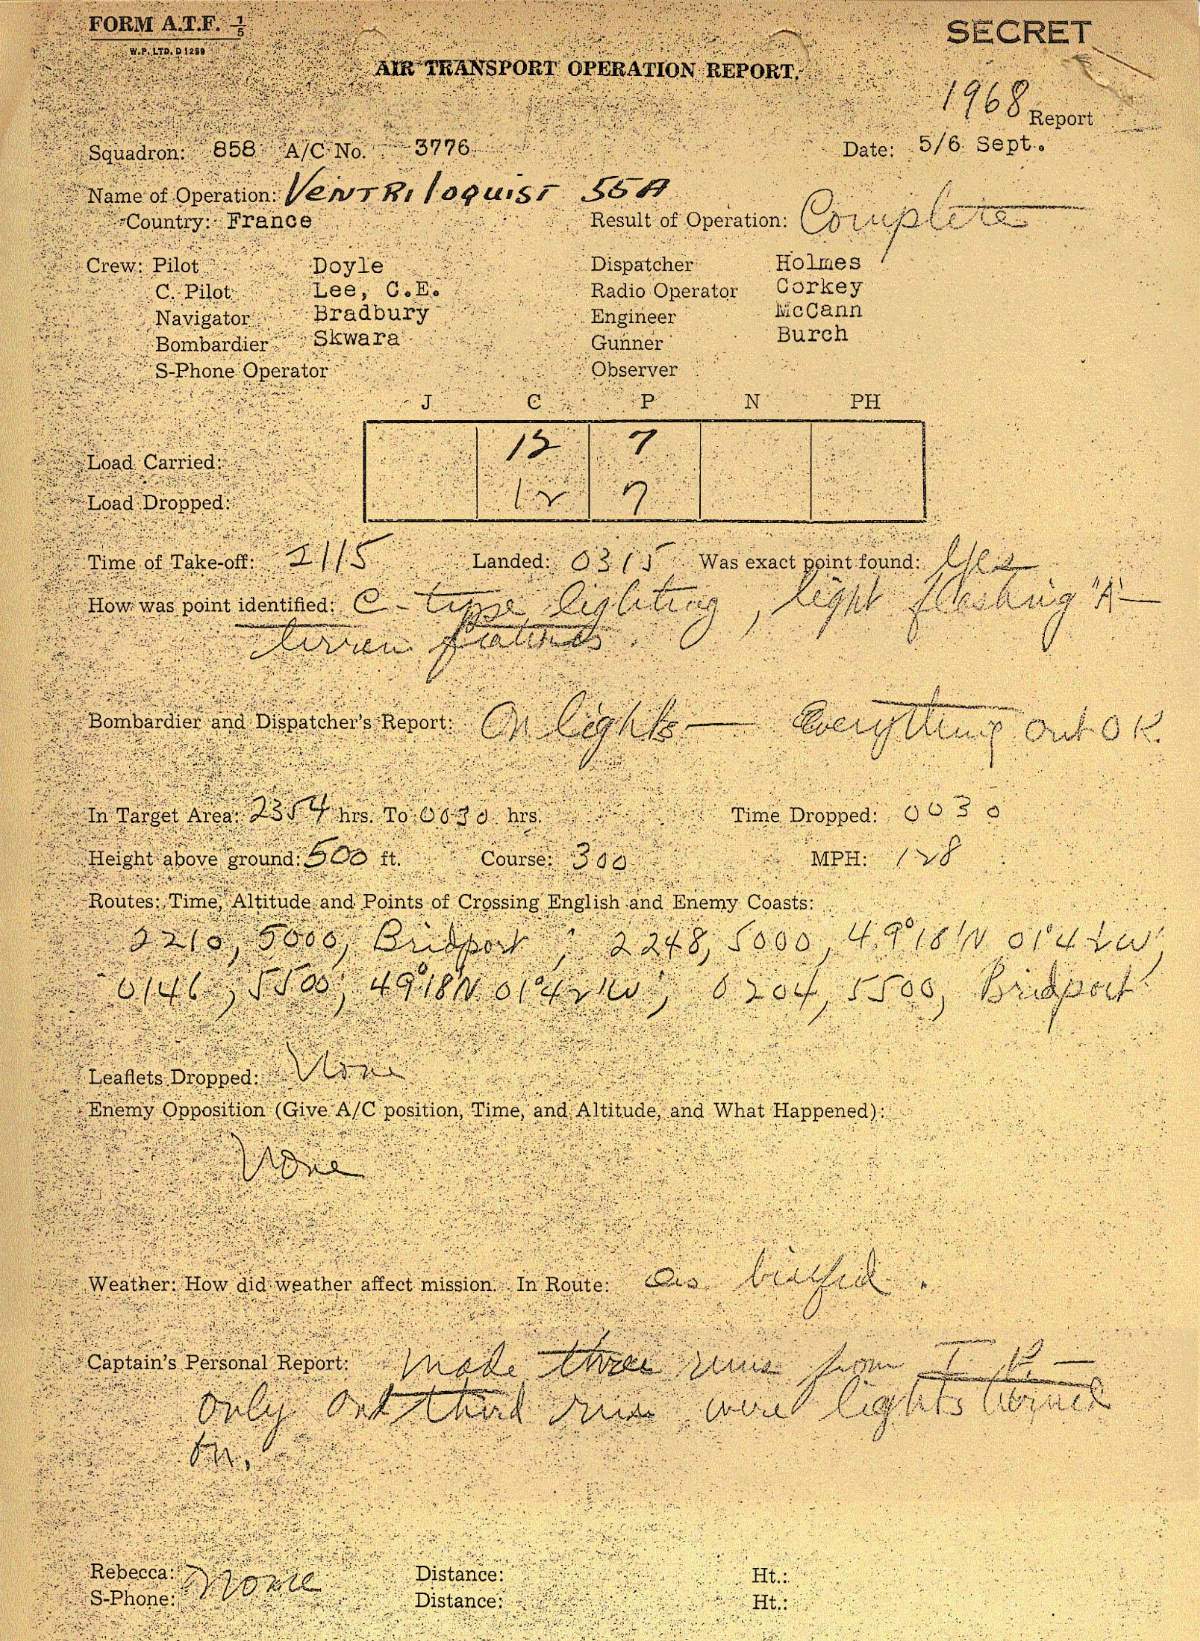 FORM A.T.F. 1/5
W.P. LTD. D1289
SECRET
AIR TRANSPORT OPERATION REPORT.
1968 Report
Squadron: 858 A/C No. 3776 Date: 5/6 Sept.
Name of Operation: VENTRILOQUIST 55A
Country: France Result of Operation: Complete
Crew: Pilot Doyle Dispatcher Holmes
C. Pilot Lee, C.E. Radio Operator Corkey
Navigator Bradbury Engineer McCann
Bombardier Skwara Gunner Burch
S-Phone Operator Observer
J C P N PH
Load Carried: 12 7
Load Dropped: 12 7
Time of Take-off: 2115 Landed: 0315 Was exact point found: Yes
How was point identified: C-type lighting, light flashing "A" —
terrain features.
Bombardier and Dispatcher's Report: On lights — Everything out OK.
In Target Area: 2354 hrs. To 0030 hrs. Time Dropped: 0030
Height above ground: 500 ft. Course: 300 MPH: 128
Routes: Time, Altitude and Points of Crossing English and Enemy Coasts:
2210, 5000, Bridport; 2248, 5000, 49°18'N 01°42'W;
0146, 5500, 49°18'N 01°42'W; 0204, 5500, Bridport
Leaflets Dropped: None
Enemy Opposition (Give A/C position, Time, and Altitude, and What Happened):
None
Weather: How did weather affect mission. In Route: As briefed.
Captain's Personal Report: Made three runs from I.P. —
only on third run were lights turned
on.
Rebecca: None Distance: Ht.:
S-Phone: Distance: Ht.: